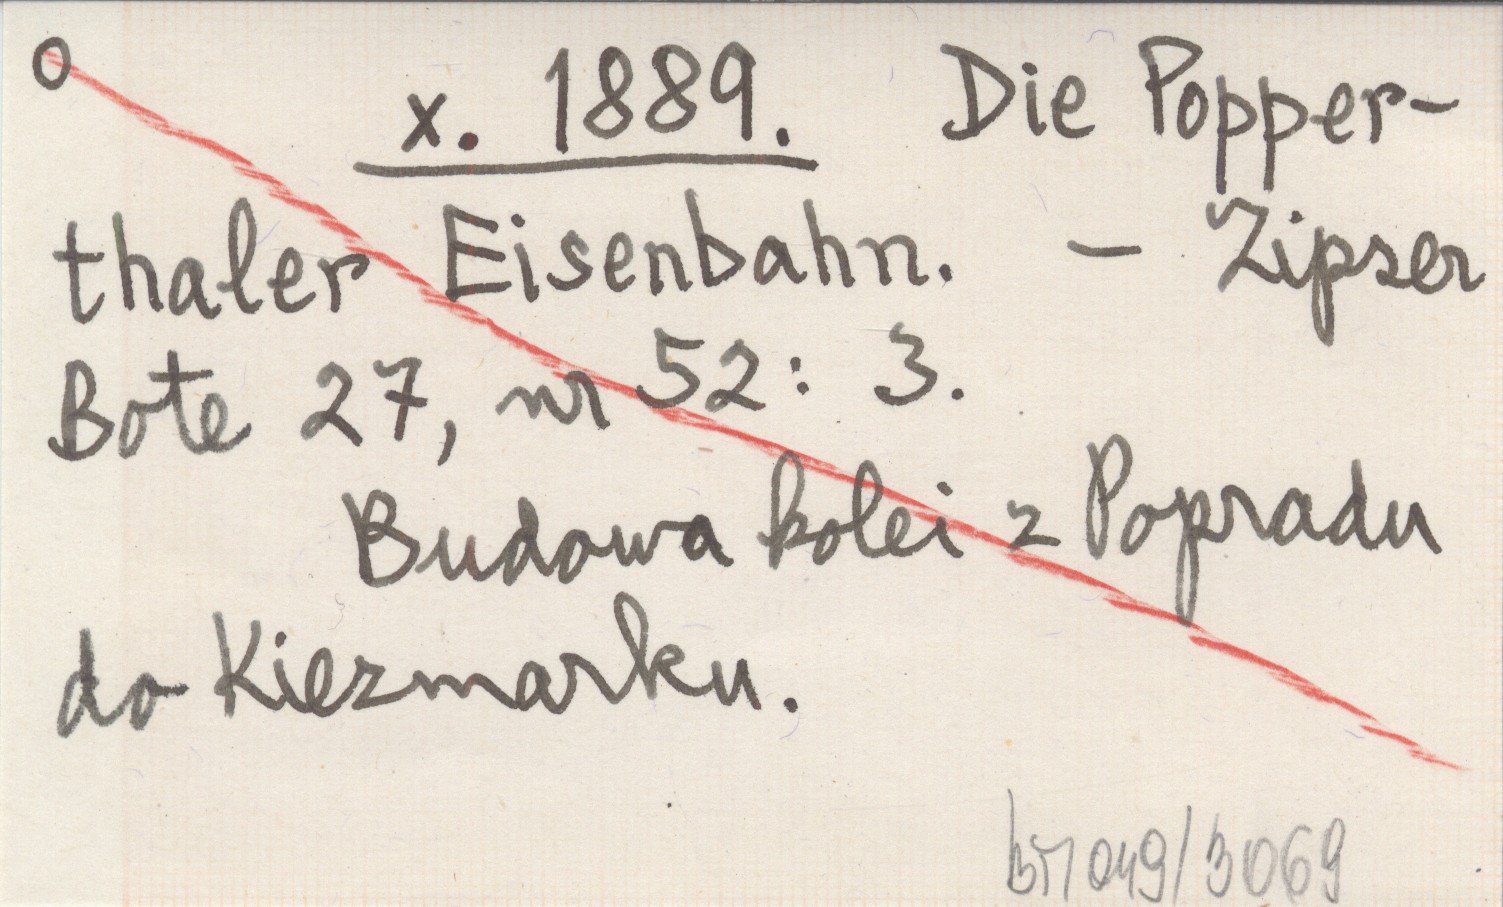 O x. 1889. Die Popper-
thaler Eisenbahn. – Zipser
Bote 27, nr 52: 3.
Budowa kolei z Popradu
do Kiezmarku.